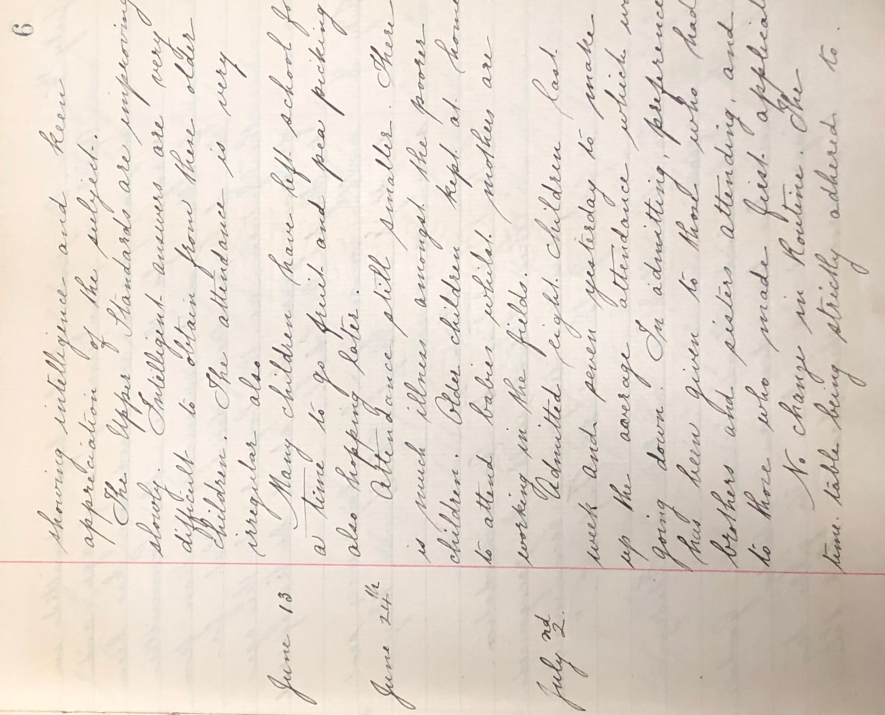 6
showing intelligence and keen
appreciation of the subject.
The Upper Standards are improving
slowly. Intelligent answers are very
difficult to obtain from these older
children. The attendance is very
irregular also
June 13 Many children have left school fo
a time to go fruit and pea picking
also hopping later.
June 24th Attendance still smaller. There
is much illness amongst the poorer
children. Older children kept at home
to attend babies whilst mothers are
working in the fields.
July 2nd. Admitted eight children last
week and seven yesterday to make
up the average attendance which w
going down. In admitting, preference
has been given to those who had
brothers and sisters attending, and
to those who made first applicat
No change in Routine. The
time-table being strictly adhered to.